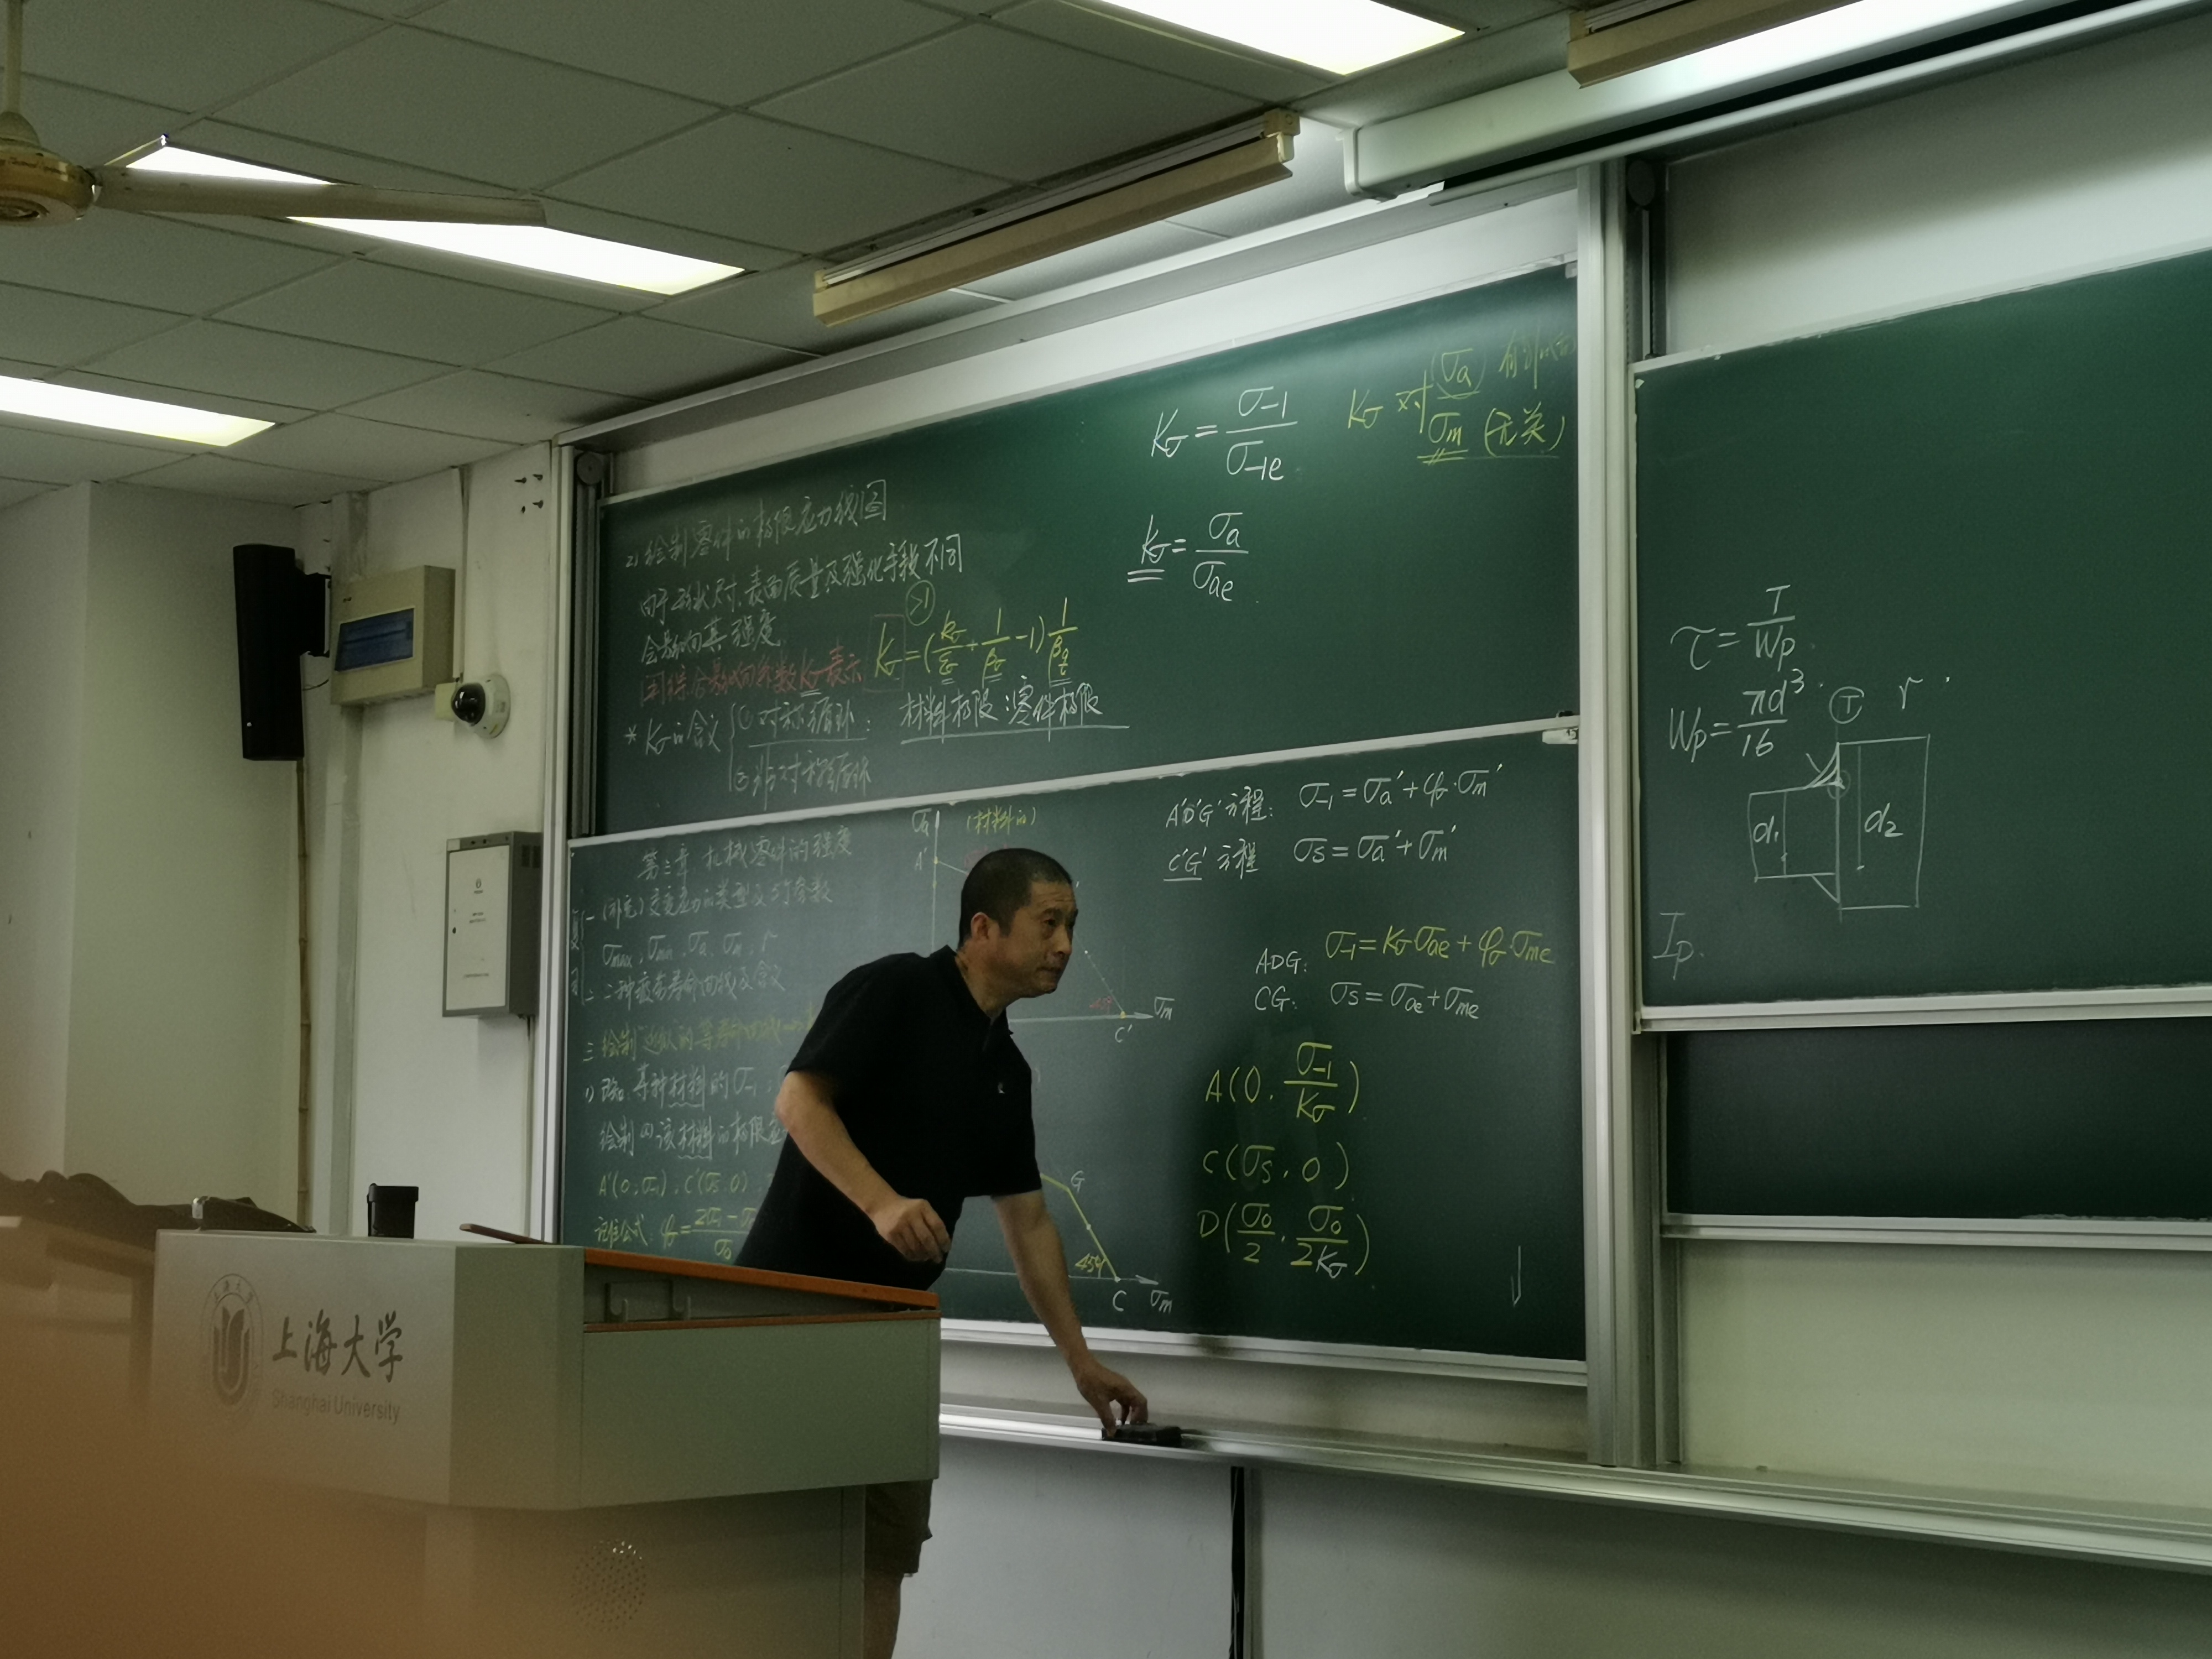 2) 绘制零件的极限应力线图
由于形状尺寸、表面质量及强化手段不同
会影响其强度
用综合影响系数Kσ表示 Kσ=(kσ/εσ+1/βσ-1)1/βq
>1
* Kσ的含义 ①对称循环: 材料极限:零件极限
②非对称循环
Kσ=σ-1/σ-1e
Kσ对 (σa) 有
σm (无关)
Kσ=σa/σae
第三章 机械零件的强度
复习
一(补充)变应力的类型及5个参数
σmax, σmin, σa, σm, r
二 二种疲劳寿命曲线及含义
三 绘制近似的等寿命曲线
1) 已知: 某种材料的σ-1
绘制出该材料的极限
A'(0,σ-1), C'(σs,0)
记住公式: φσ=2σ-1-σ0/σ0
σa
(材料的)
A'
45°
C'
σm
G
45°
C
σm
A'D'G'方程: σ-1=σa'+φσ·σm'
C'G'方程 σs=σa'+σm'
ADG: σ-1=Kσσae+φσ·σme
CG: σs=σae+σme
A(0,σ-1/Kσ)
C(σs,0)
D(σ0/2,σ0/2Kσ)
τ=T/Wp
Wp=πd³/16
T r
d1
d2
Ip
上海大学
Shanghai University